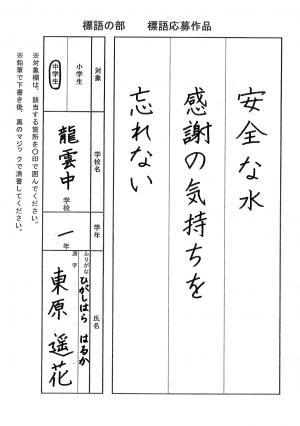 標語の部　標語応募作品
安全な水
感謝の気持ちを
忘れない
対象
小学生
中学生
学校名
龍雲中学校
学年
一年
氏名
ふりがな
ひがしはら　はるか
漢字
東原　遥花
※対象欄は、該当する箇所を〇印で囲んでください。
※鉛筆で下書き後、黒のマジックで清書してください。